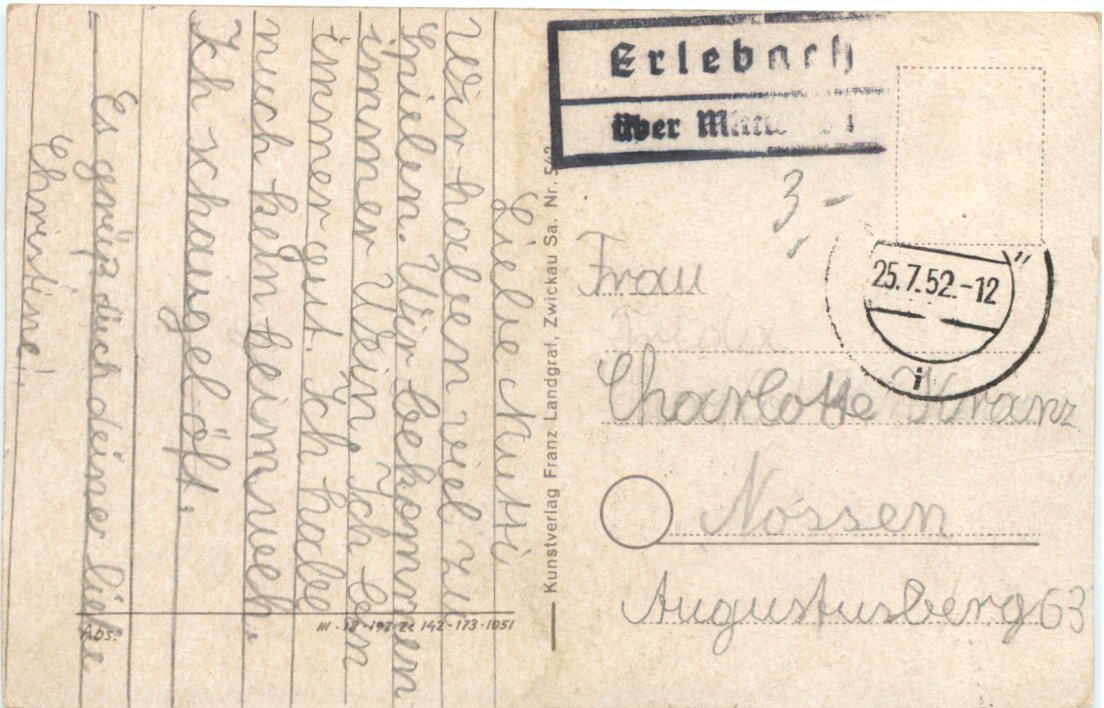 Liebe Mutti
Wir haben viel zu
Spielen. Wir bekommen
immer Ich bin
immer gut. Ich habe
nuch kein heimweh.
Ich schaugel öft.
Es grüß dich deine liebe
Christine!
Abs.
III-18-197 Ze 142-173-1051
Kunstverlag Franz Landgraf, Zwickau Sa. Nr.
Erlebach
über
3-
25.7.52.-12
i
Frau
Frida
Charlotte Kranz
Nossen
Augustusberg 63